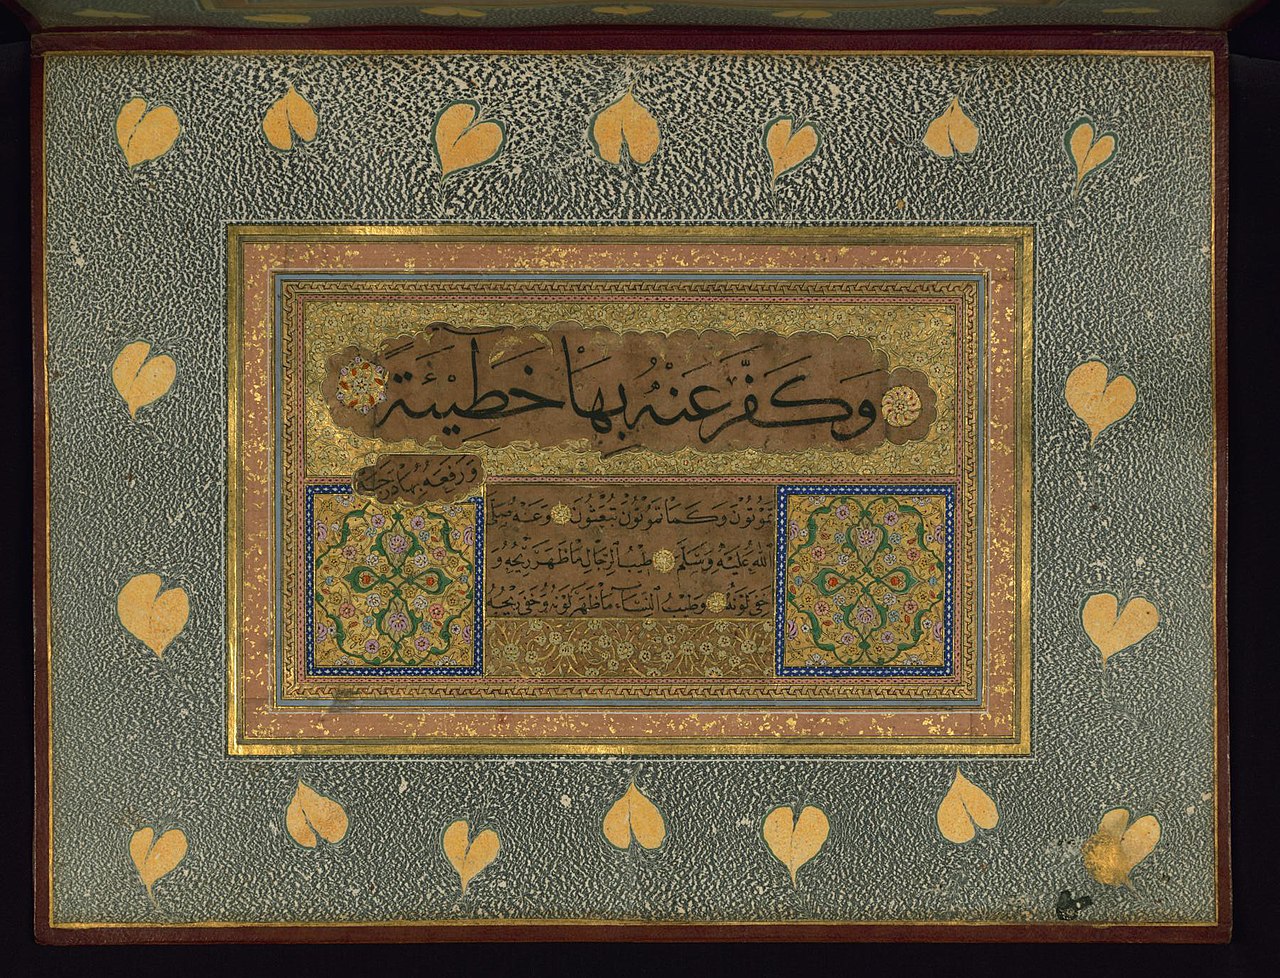 وَكَفَّرَ عَنْهُ بِهَا خَطِيْئَةً
وَرَفَعَهُ بِهَا دَرَجَةً
تَمُوتُونَ وَكَمَا تَمُوتُونَ تُبْعَثُونَ وَعَنْهُ صَلَّى
اللهُ عَلَيْهِ وَسَلَّمَ طِيبُ الرِّجَالِ مَا ظَهَرَ رِيْحُهُ وَ
خَفِيَ لَوْنُهُ وَطِيبُ النِّسَاءِ مَا ظَهَرَ لَوْنُهُ وَخَفِيَ رِيْحُهُ